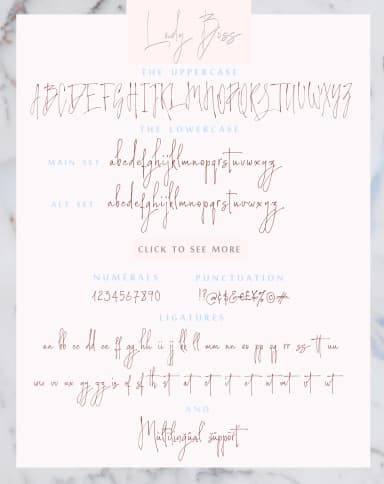 Lady Boss
THE UPPERCASE
ABCDEFGHIJKLMNOPQRSTUVWXYZ
THE LOWERCASE
MAIN SET abcdefghijklmnopqrstuvwxyz
ALT SET abcdefghijklmnopqrstuvwxyz
CLICK TO SEE MORE
NUMERALS PUNCTUATION
1234567890 !?@¢$£€¥%©#
LIGATURES
bb cc dd ee ff gg hh ii jj kk ll mm nn oo pp qq rr ss tt uu
vv xx yy zz is of sf th st at et it
AND
Multilingual support